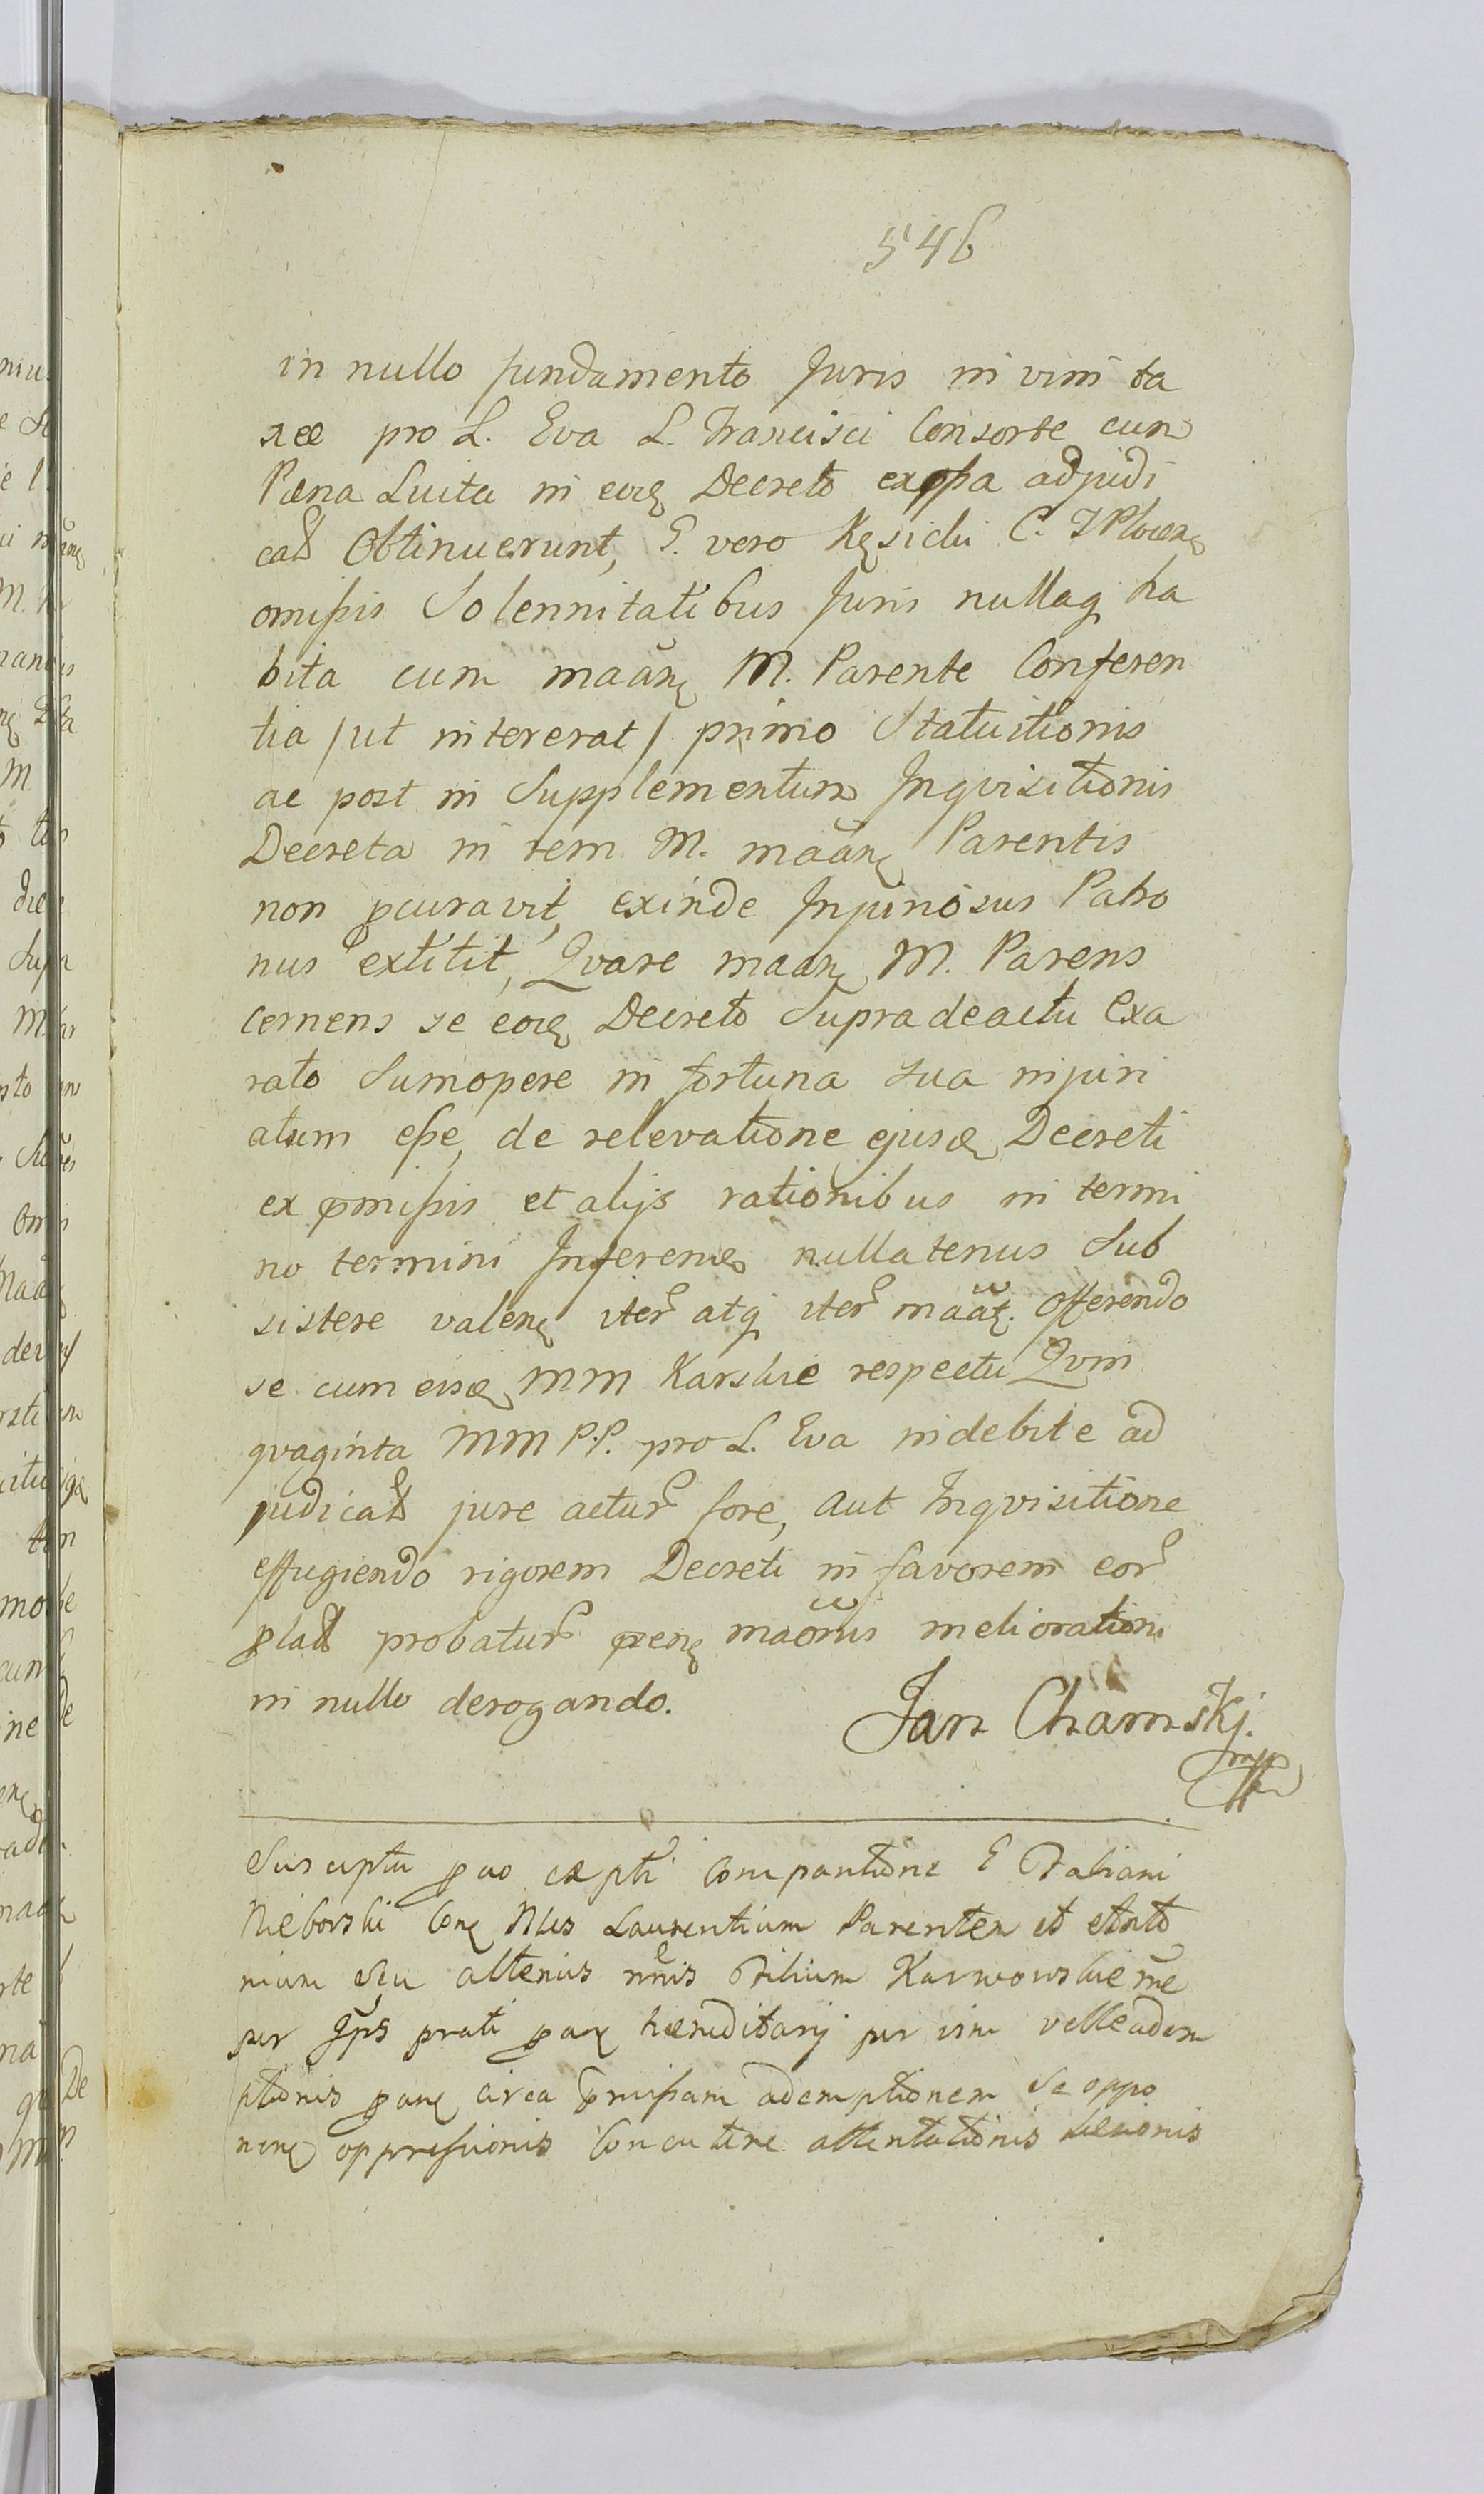 546
in nullo fundamento Juris in vim ta
xee pro L. Eva L. Francisci Consorte cum
Pæna Luita in eoq Decreto expssa adjudi
cat Obtinuerunt, G. vero Kęsicki C. T Plocen
omissis Solennitatibus Juris nullaq ha
bita cum maan M. Parente Conferen
tia /ut intererat/ primo Statuitionis
ac post in Supplementum Inqvisitionis
Decreta in rem M. maan Parentis
non pcuravit, exinde Injuriosus Patro
nus extitit, Qvare maan M. Parens
cernens se eoq Decreto Supradeactu Exa
rato Sumopere in fortuna sua injuri
atum esse, de relevatione ejusd Decreti
ex pmissis et alijs rationibus in termi
no termini Inferend nullatenus Sub
sistere valen iter atq iter maat. Offerendo
se cum eisd MM Karskie respectu Qvin
qvaginta MM P.P. pro L. Eva indebite ad
judicat jure actur fore, aut Inqvisitione
effugiendo rigorem Decreti in favorem eor
plat probatur pen maonis meliorationi
in nullo derogando.
Jan Chamskj.
mpp
Susceptu pao capti Comparitione G
Nieborski Con Nles Laurentium Parentem et Anto
nium seu alterius nnis Filium Karwowskie me
per Jps prati pan hæreditarij per vim velle adem
ptionis pan circa pmissam ademptionem se oppo
nen oppressionis Concutere attentationis Læsionis